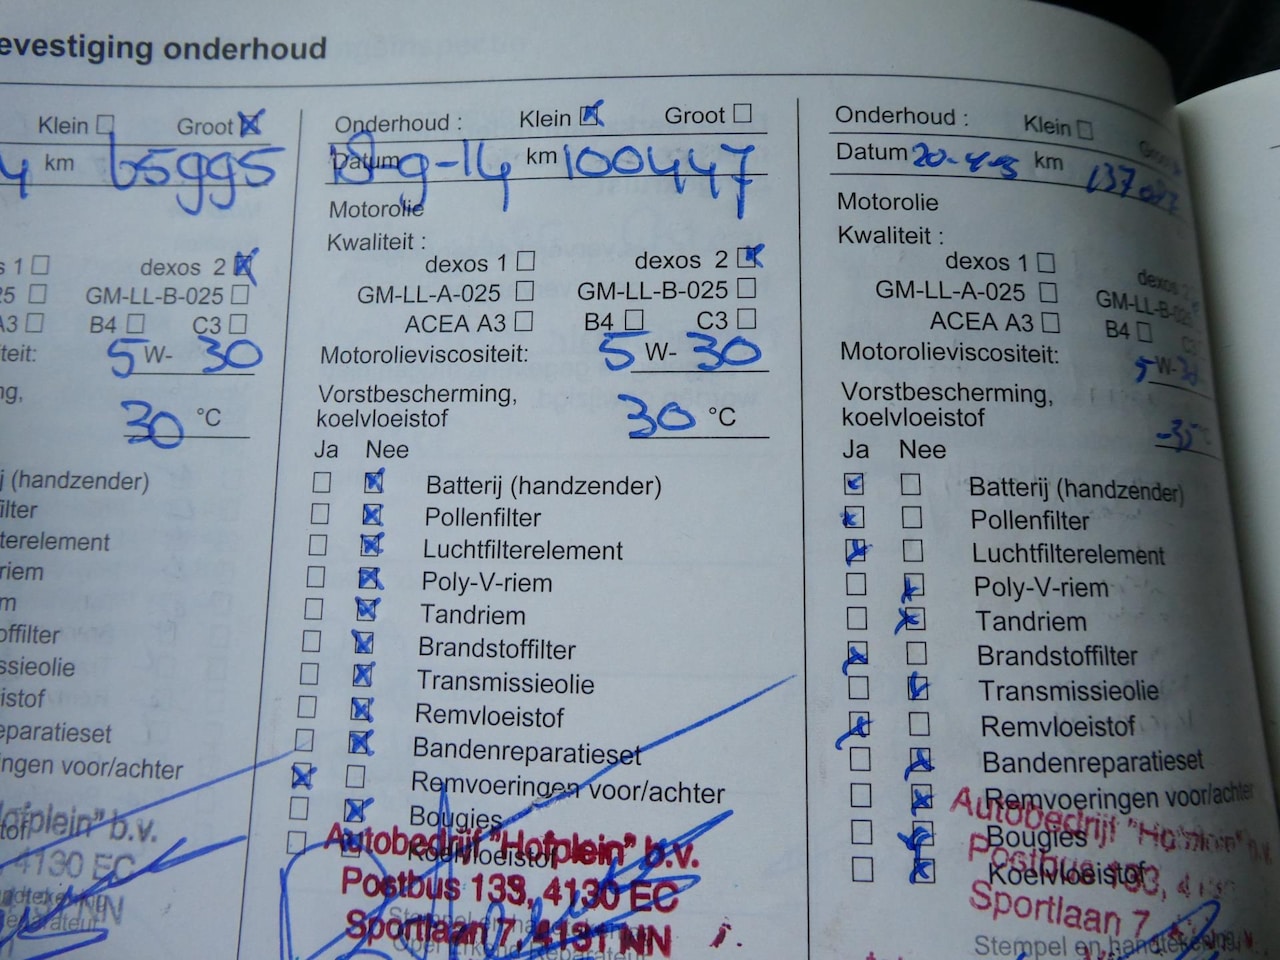 evestiging onderhoud
Klein Groot
4 km 65995
s 1 dexos 2
25 GM-LL-B-025
A3 B4 C3
teit: 5 W- 30
ng,
30 °C
j (handzender)
ilter
terelement
riem
m
offilter
ssieolie
istof
eparatieset
ingen voor/achter
Hofplein" b.v.
4130 EC
NN
Onderhoud : Klein Groot
Datum 18-9-14 km 100447
Motorolie
Kwaliteit :
dexos 1 dexos 2
GM-LL-A-025 GM-LL-B-025
ACEA A3 B4 C3
Motorolieviscositeit: 5 W- 30
Vorstbescherming,
koelvloeistof 30 °C
Ja Nee
Batterij (handzender)
Pollenfilter
Luchtfilterelement
Poly-V-riem
Tandriem
Brandstoffilter
Transmissieolie
Remvloeistof
Bandenreparatieset
Remvoeringen voor/achter
Bougies
Koelvloeistof
Autobedrijf "Hofplein" b.v.
Postbus 133, 4130 EC
Sportlaan 7, 4131 NN
Onderhoud : Klein
Datum km
Motorolie
Kwaliteit :
dexos 1 dexos
GM-LL-A-025 GM-LL-B-025
ACEA A3 B4
Motorolieviscositeit: 5 W- 30
Vorstbescherming,
koelvloeistof
Ja Nee
Batterij (handzender)
Pollenfilter
Luchtfilterelement
Poly-V-riem
Tandriem
Brandstoffilter
Transmissieolie
Remvloeistof
Bandenreparatieset
Remvoeringen voor/achter
Bougies
Koelvloeistof
Autobedrijf "Hofplein"
Postbus 133,
Sportlaan 7,
Stempel en handtekening